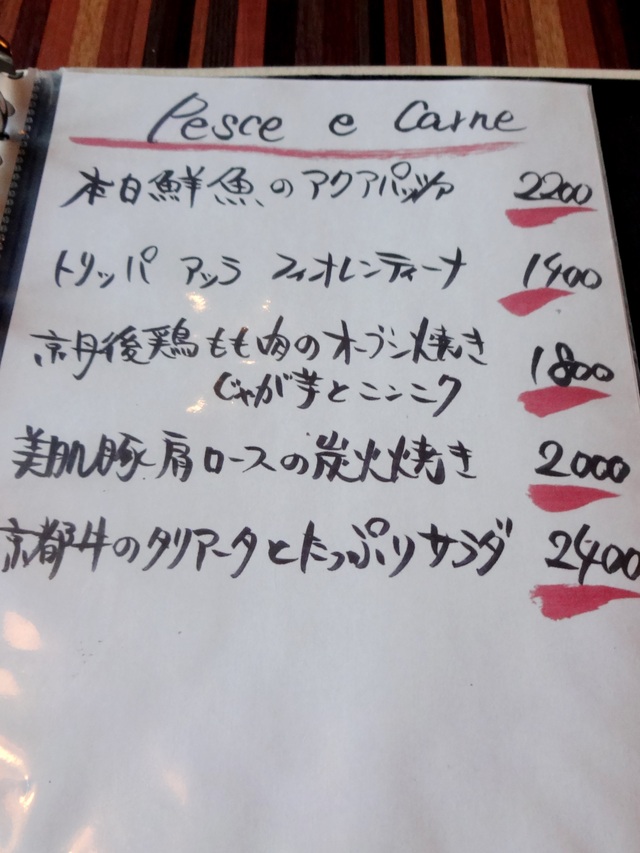 Pesce e Carne
本日鮮魚のアクアパッツァ 2200
トリッパ アッラ フィオレンティーナ 1400
京丹後鶏もも肉のオーブン焼き 1800
じゃが芋とニンニク
美肌豚肩ロースの炭火焼き 2000
京都牛のタリアータとたっぷりサラダ 2400